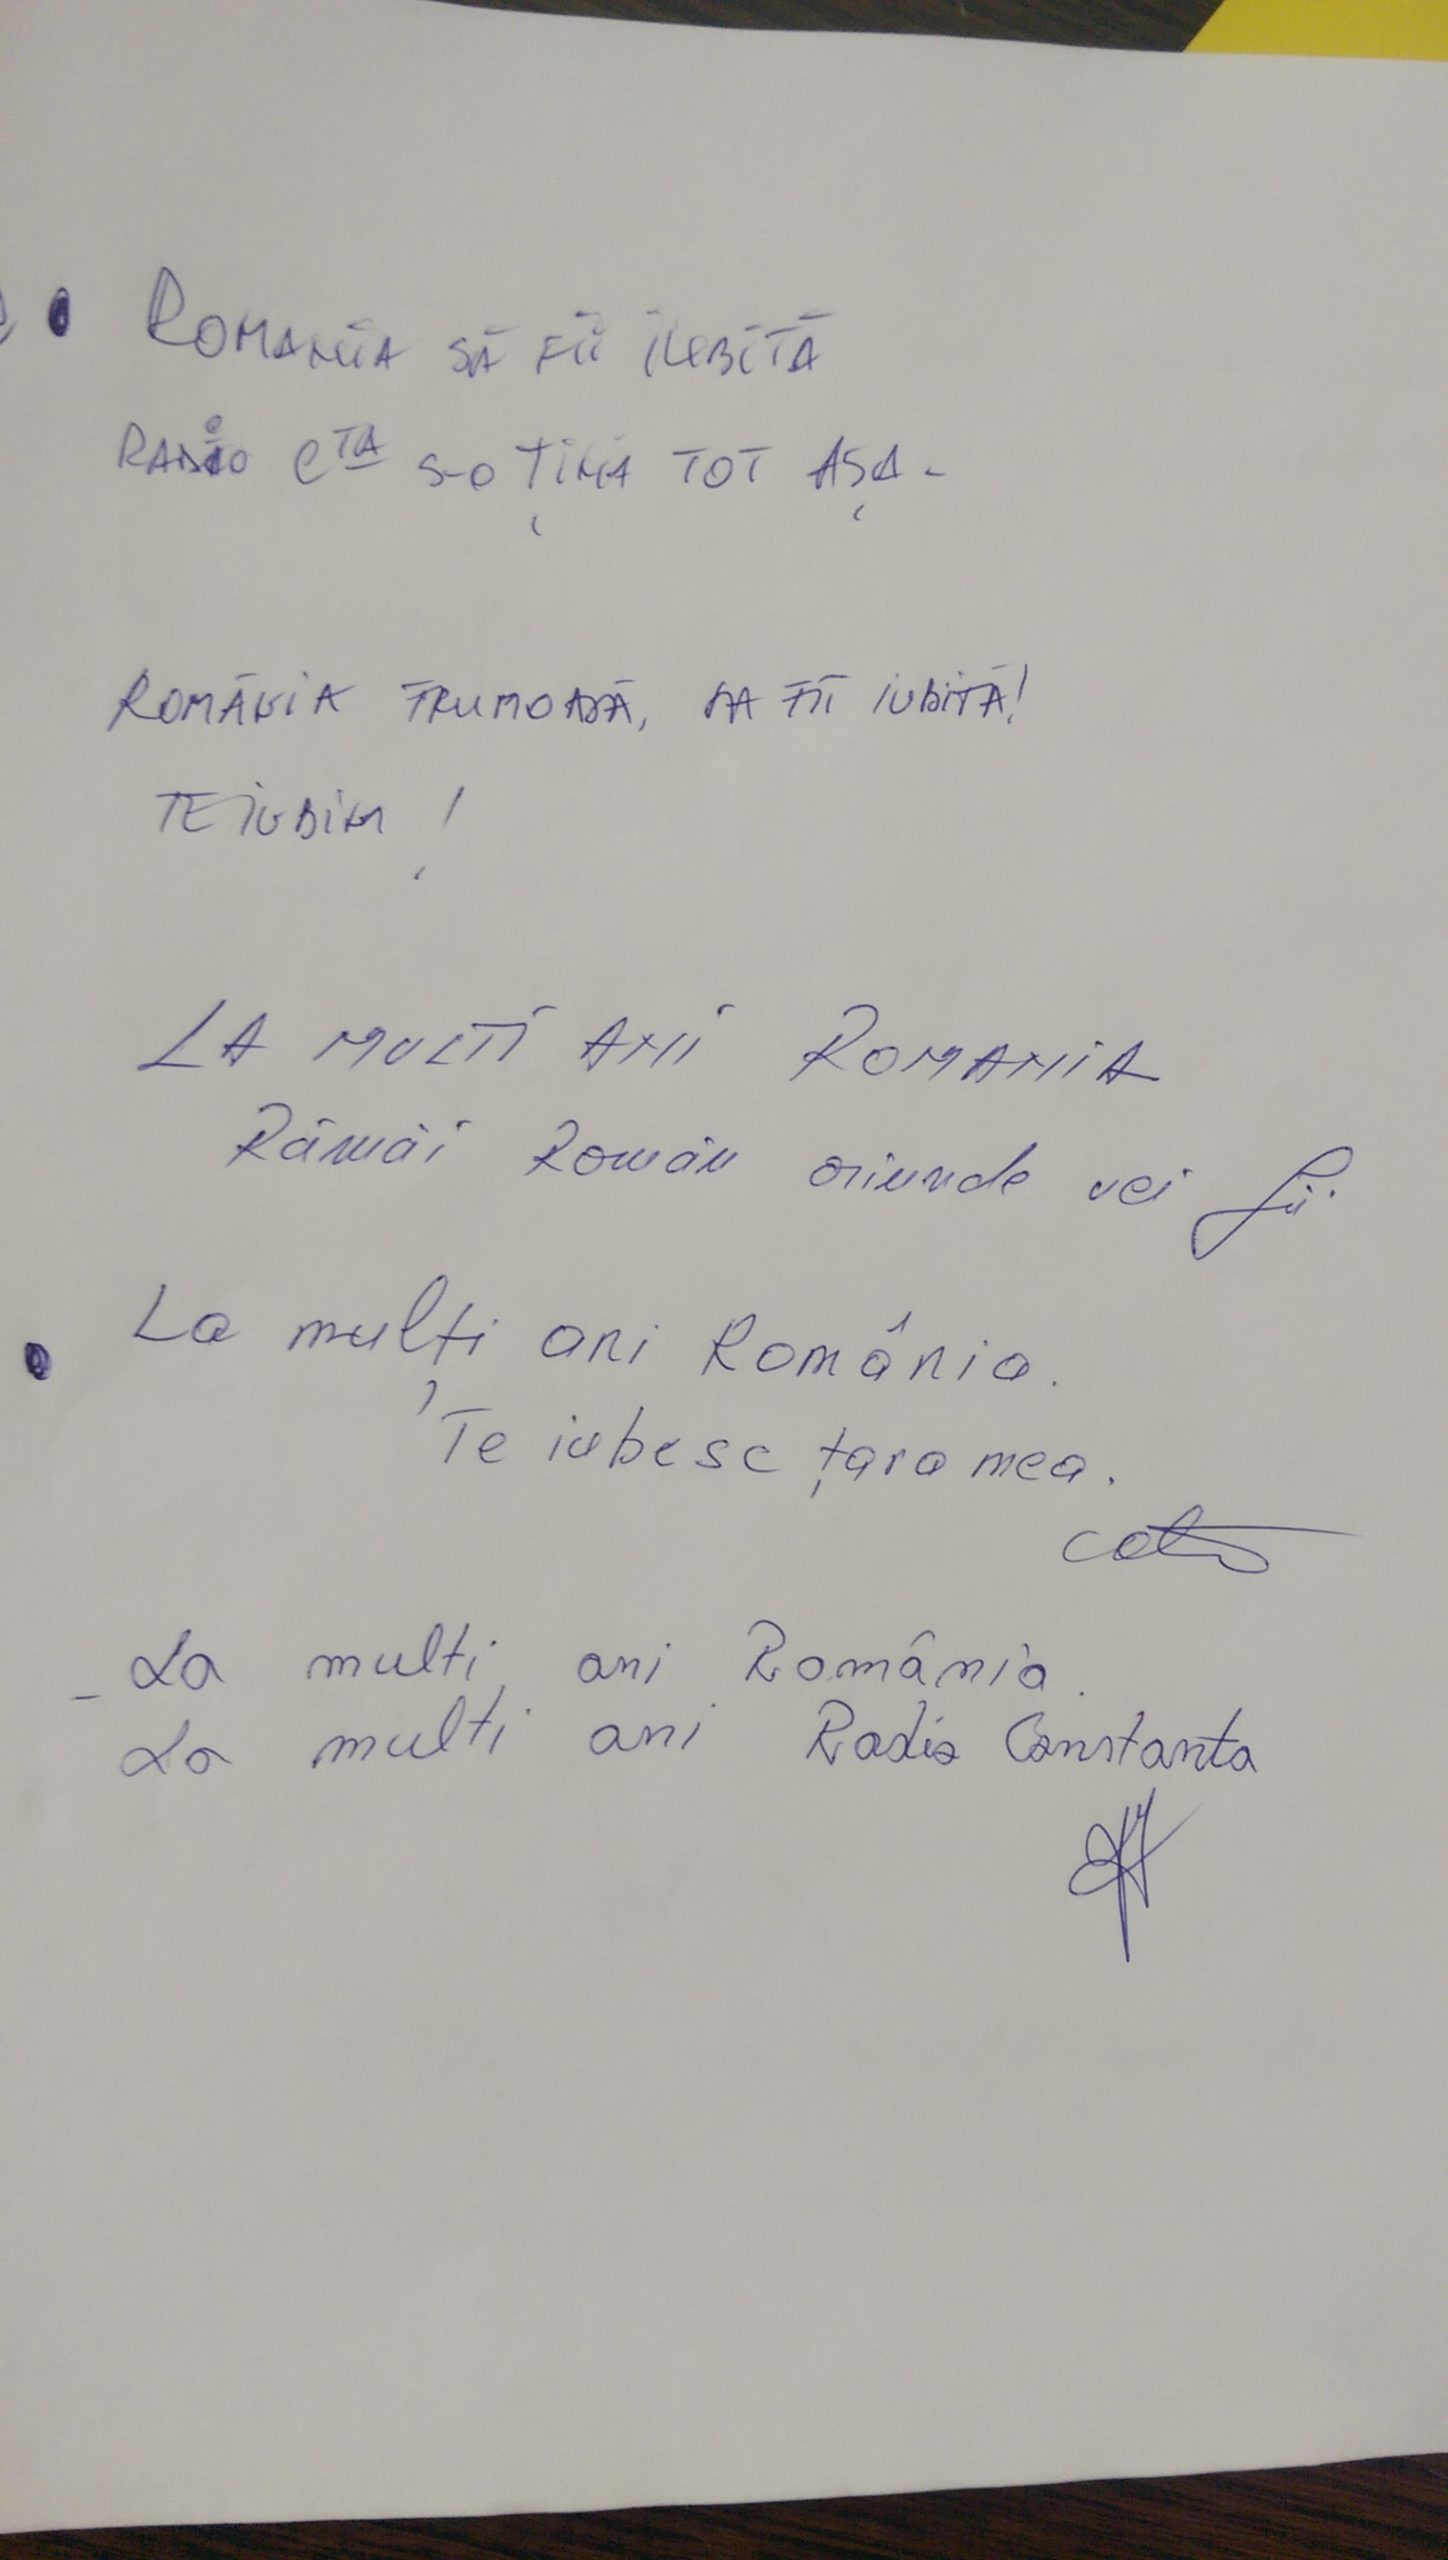 ROMANIA SĂ FII IUBITĂ
RADIO CTA S-O ȚINĂ TOT AȘA -
ROMÂNIA FRUMOASĂ, SA FII IUBITĂ!
TE IUBIM !
LA MULTI ANI ROMANIA
Rămâi Român oriunde vei fi.
La mulți ani România.
Te iubesc țara mea.
La multi ani România.
La multi ani Radio Constanta